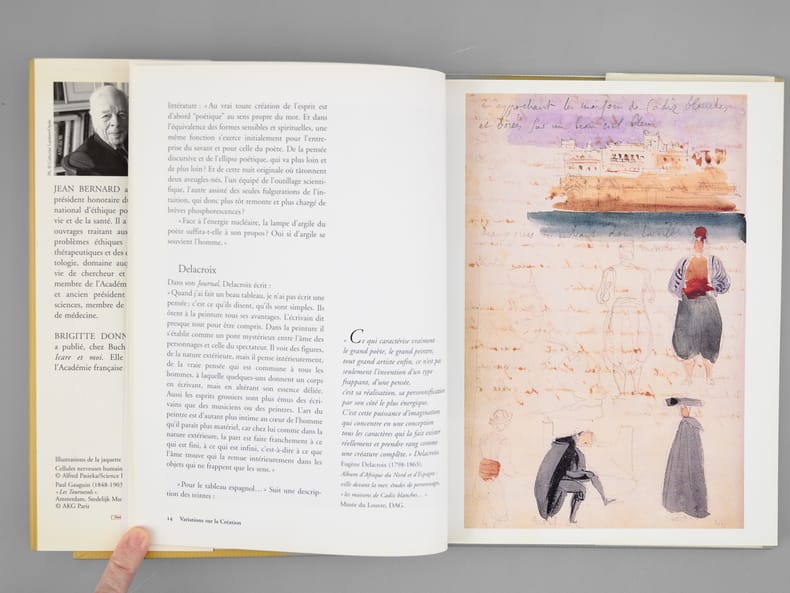 JEAN BERNARD a
président honoraire du
national d'éthique po
vie et de la santé. Il a
ouvrages traitant au
problèmes éthiques
thérapeutiques et des
tologie, domaine auq
vie de chercheur et
membre de l'Académ
et ancien président
sciences, membre de
de médecine.
BRIGITTE DONN
a publié, chez Buch
Icare et moi. Elle
l'Académie française
Illustrations de la jaquette
Cellules nerveuses humain
© Alfred Pasieka/Science
Paul Gauguin (1848-190
« Les Tournesols ».
Amsterdam, Stedelijk Mu
© AKG Paris
littérature : « Au vrai toute création de l'esprit est
d'abord "poétique" au sens propre du mot. Et dans
l'équivalence des formes sensibles et spirituelles, une
même fonction s'exerce initialement pour l'entre-
prise du savant et pour celle du poète. De la pensée
discursive et de l'ellipse poétique, qui va plus loin et
de plus loin ? Et de cette nuit originale où tâtonnent
deux aveugles-nés, l'un équipé de l'outillage scienti-
fique, l'autre assisté des seules fulgurations de l'in-
tuition, qui donc plus tôt remonte et plus chargé de
brèves phosphorescences ?
« Face à l'énergie nucléaire, la lampe d'argile du
poète suffira-t-elle à son propos ? Oui si d'argile se
souvient l'homme. »
Delacroix
Dans son Journal, Delacroix écrit :
« Quand j'ai fait un beau tableau, je n'ai pas écrit une
pensée : c'est ce qu'ils disent, qu'ils sont simples. Ils
ôtent à la peinture tous ses avantages. L'écrivain dit
presque tout pour être compris. Dans la peinture il
s'établit comme un pont mystérieux entre l'âme des
personnages et celle du spectateur. Il voit des figures,
de la nature extérieure, mais il pense intérieurement,
de la vraie pensée qui est commune à tous les
hommes, à laquelle quelques-uns donnent un corps
en écrivant, mais en altérant son essence déliée.
Aussi les esprits grossiers sont plus émus des écri-
vains que des musiciens ou des peintres. L'art du
peintre est d'autant plus intime au cœur de l'homme
qu'il paraît plus matériel, car chez lui comme dans la
nature extérieure, la part est faite franchement à ce
qui est fini, à ce qui est infini, c'est-à-dire à ce que
l'âme trouve qui la remue intérieurement dans les
objets qui ne frappent que les sens. »
« Pour le tableau espagnol... » Suit une descrip-
tion des teintes :
14 Variations sur la Création
« Ce qui caractérise vraiment
le grand poète, le grand peintre,
tout grand artiste enfin, ce n'est pas
seulement l'invention d'un type
frappant, d'une pensée,
c'est sa réalisation, sa personnification
par son côté le plus énergique.
C'est cette puissance d'imagination
qui concentre en une conception
tous les caractères qui la fait exister
réellement et prendre rang comme
une créature complète. » Delacroix
Eugène Delacroix (1798-1863).
Album d'Afrique du Nord et d'Espagne :
ville devant la mer, études de personnages,
« les maisons de Cadix blanches... »
Musée du Louvre, DAG.
approchant les maisons de Cadix blanches
et dorées sur un beau ciel bleu